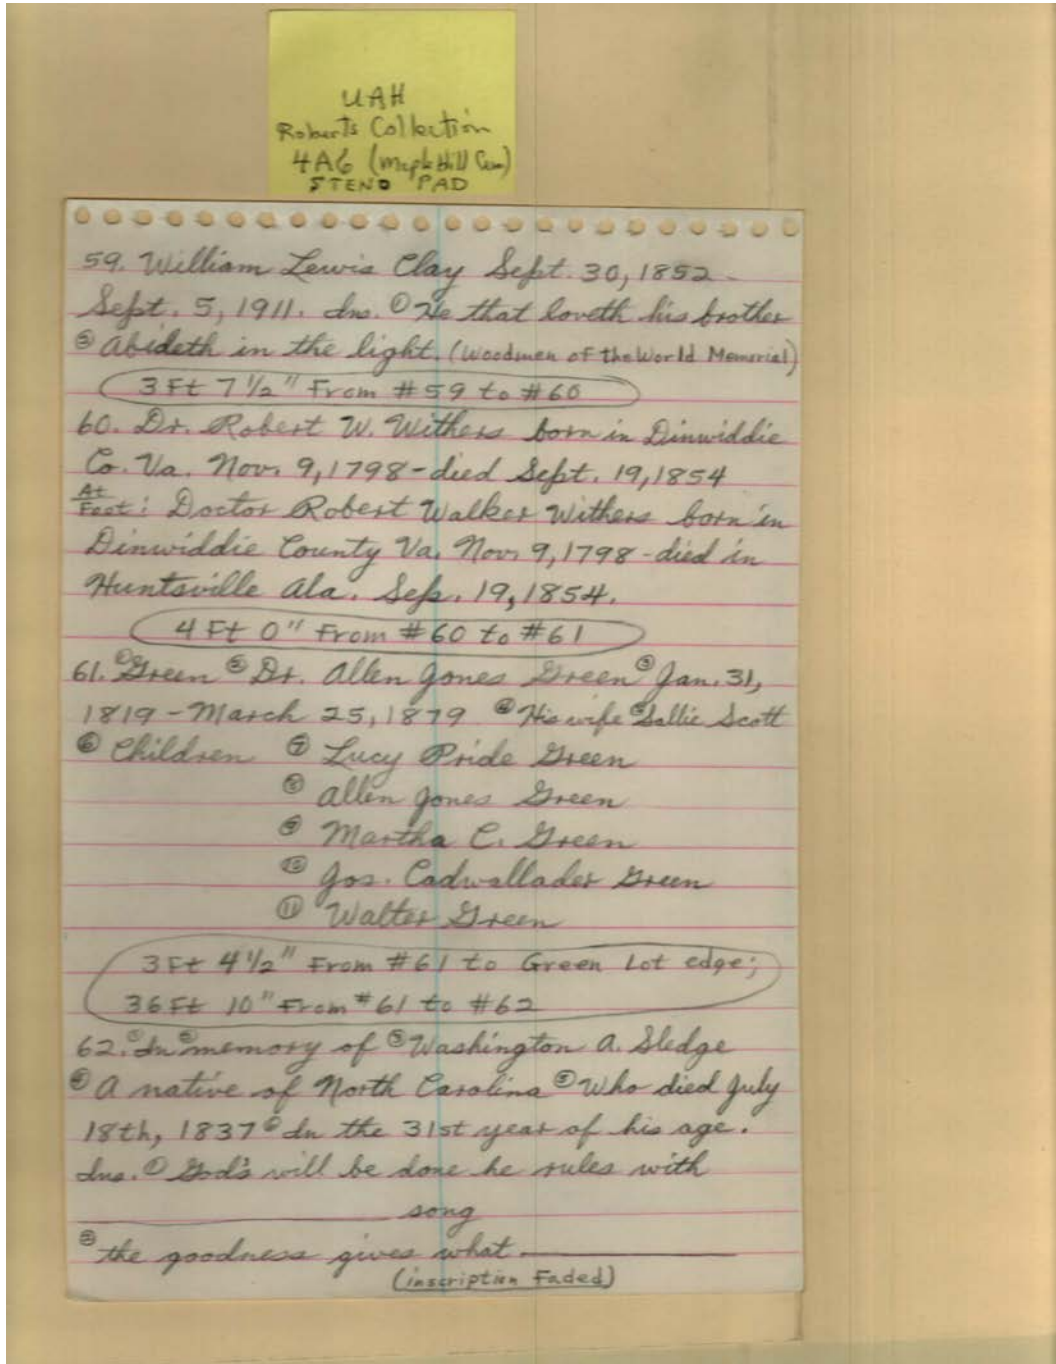 UAH
Roberts Collection
4A6 (Maple Hill Cem)
STENO PAD
59. William Lewis Clay Sept. 30, 1852 -
Sept. 5, 1911. Ins. ① He that loveth his brother
② Abideth in the light. (Woodmen of the World Memorial)
3 Ft 7 1/2" From #59 to #60
60. Dr. Robert W. Withers born in Dinwiddie
Co. Va. Nov. 9, 1798 - died Sept. 19, 1854
At Foot: Doctor Robert Walker Withers born in
Dinwiddie County Va. Nov. 9, 1798 - died in
Huntsville Ala. Sep. 19, 1854.
4 Ft 0" From #60 to #61
61. ① Green ② Dr. Allen Jones Green ③ Jan. 31,
1819 - March 25, 1879 ④ His wife ⑤ Sallie Scott
⑥ Children ⑦ Lucy Pride Green
⑧ Allen Jones Green
⑨ Martha C. Green
⑩ Jos. Cadwallader Green
⑪ Walter Green
3 Ft 4 1/2" From #61 to Green Lot edge;
36 Ft 10" From #61 to #62
62. ① In ② memory of ③ Washington A. Sledge
④ A native of North Carolina ⑤ Who died July
18th, 1837 ⑥ In the 31st year of his age.
Ins. ① God's will be done he rules with
song
② the goodness gives what
(inscription Faded)